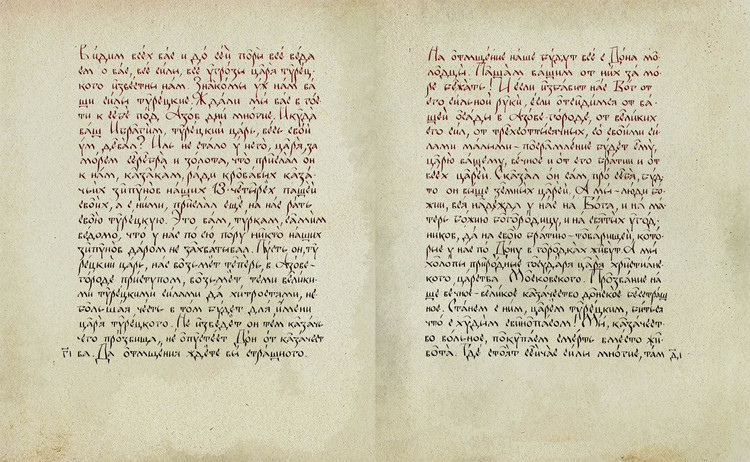 Видим всех вас и до сей поры все веда
ем о вас, все силы, все угрозы царя турец-
кого известны нам. Знакомы уж нам ва
ши силы турецкие. Ждали мы вас в гос
ти к себе под Азов дни многие. И куда
ваш Ибрагим, турецкий царь, весь свой
ум девал? Иль не стало у него, царя, за
морем серебра и золота, что прислал он
к нам, казакам, ради кровавых каза-
чьих зипунов наших 13-четырех пашей
своих, а с ними, прислал еще, на нас рать
свою турецкую. Это вам, туркам, самим
ведомо, что у нас по сю пору никто наших
зипунов даром не захватывал. Пусть он, ту
рецкий царь, нас возьмет теперь, в Азове-
городе приступом, возьмет теми велики-
ми турецкими силами да хитростями, не-
большая честь в том будет для имени
царя турецкого. Не изведет он тем казачь-
его прозвища, не опустеет Дон от казачест
ва. Да отмщения ждёте вы страшного.
На отмщение наше будут все с Дона мо-
лодцы. Пашам вашим от них за мо-
ре бежать! И если избавит нас Бог от
его сильной руки, если отсидимся от ва-
шей осады в Азове-городе, от великих
его сил, от трехсоттысячных, со своими си-
лами малыми – посрамление будет ему,
царю вашему, вечное и от его братии и от
всех царей. Сказал он сам про себя, буд-
то он выше земных царей. А мы-люди бо-
жии, вся надежда у нас на Бога, и на ма-
терь божию богородицу, и на святых угод-
ников, да на свою братию-товарищей, кото-
рые у нас по Дону в городках живут. А мы
холопы природные государя царя христианс-
кого царства Московского. Прозвание на-
ше вечное-великое казачество донское бесстраш
ное. Станем с ним, царем турецким, биться
что с худым свинопасом! Мы, казачест-
во вольное, покупаем смерть вместо жи-
вота. Где стоят сейчас силы многие, там